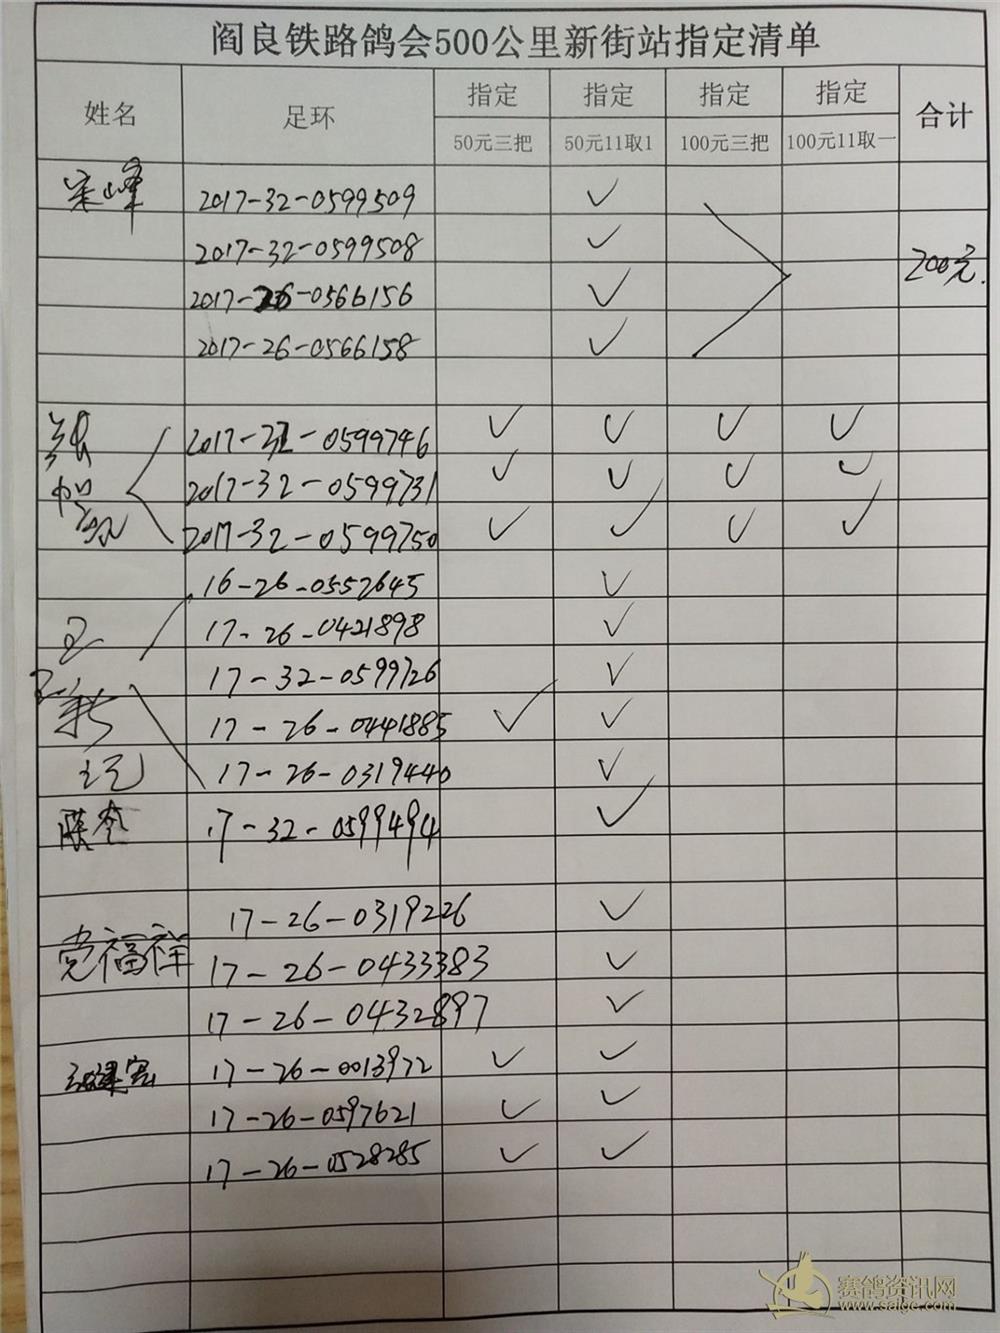 阎良铁路鸽会500公里新街站指定清单
姓名 足环 指定 指定 指定 指定 合计
50元三把 50元11取1 100元三把 100元11取一
宋峰 2017-32-0599509 ✓
2017-32-0599508 ✓
2017-26-0566156 ✓ 200元.
2017-26-0566158 ✓
2017-32-0599746 ✓ ✓ ✓ ✓
2017-32-0599731 ✓ ✓ ✓ ✓
2017-32-0599750 ✓ ✓ ✓ ✓
16-26-0552645 ✓
17-26-0421898 ✓
17-32-0599726 ✓
17-26-0441885 ✓ ✓
17-26-0319440 ✓
17-32-0599494 ✓
17-26-0319226 ✓
党福祥 17-26-0433383 ✓
17-26-0432897 ✓
17-26-0013972 ✓ ✓
17-26-0597621 ✓ ✓
17-26-0528285 ✓ ✓
赛鸽资讯网
www.saige.com